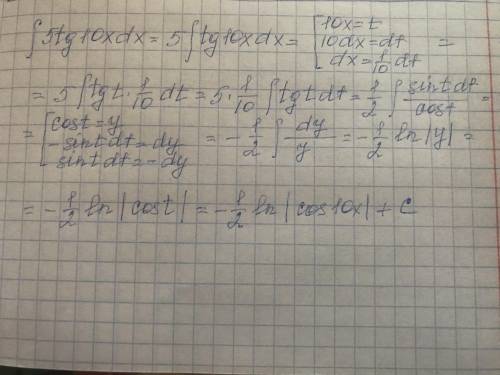 ∫5tg10xdx = 5∫tg10xdx = [10x=t
10dx=dt =
dx=1/10 dt
= 5∫tgt·1/10 dt = 5·1/10 ∫tgtdt = 1/2 ∫ sintdt/cost =
= [cost=y
-sintdt=dy = -1/2 ∫ dy/y = -1/2 ln|y| =
sintdt=-dy
= -1/2 ln|cost| = -1/2 ln|cos10x| + C